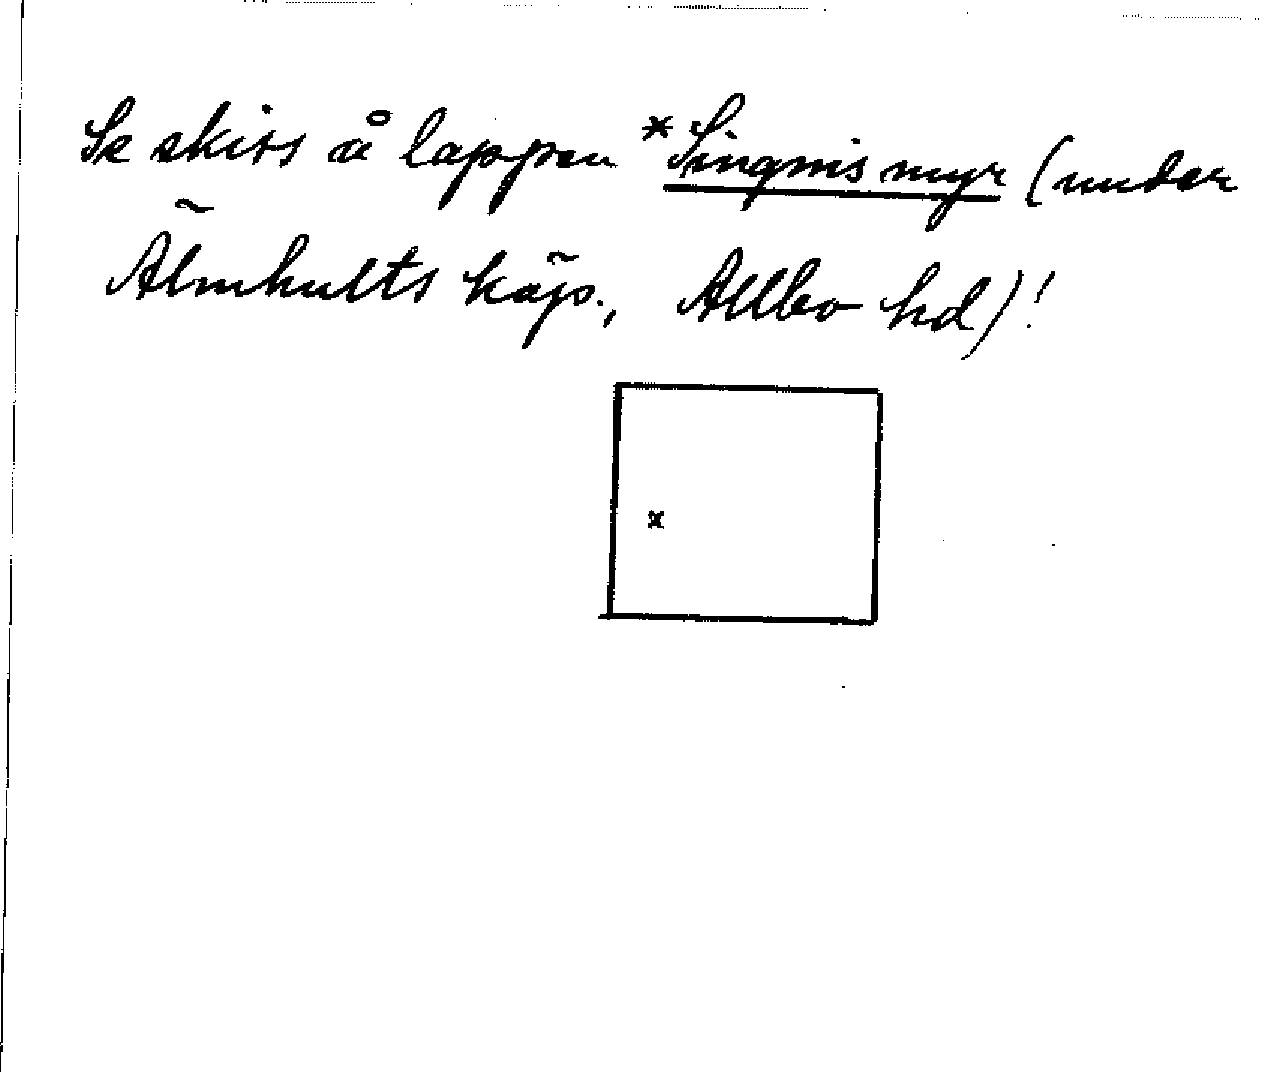 Se skiss å lappen *Singnis myr (under
Älmhults köp., Allbo hd)!
x